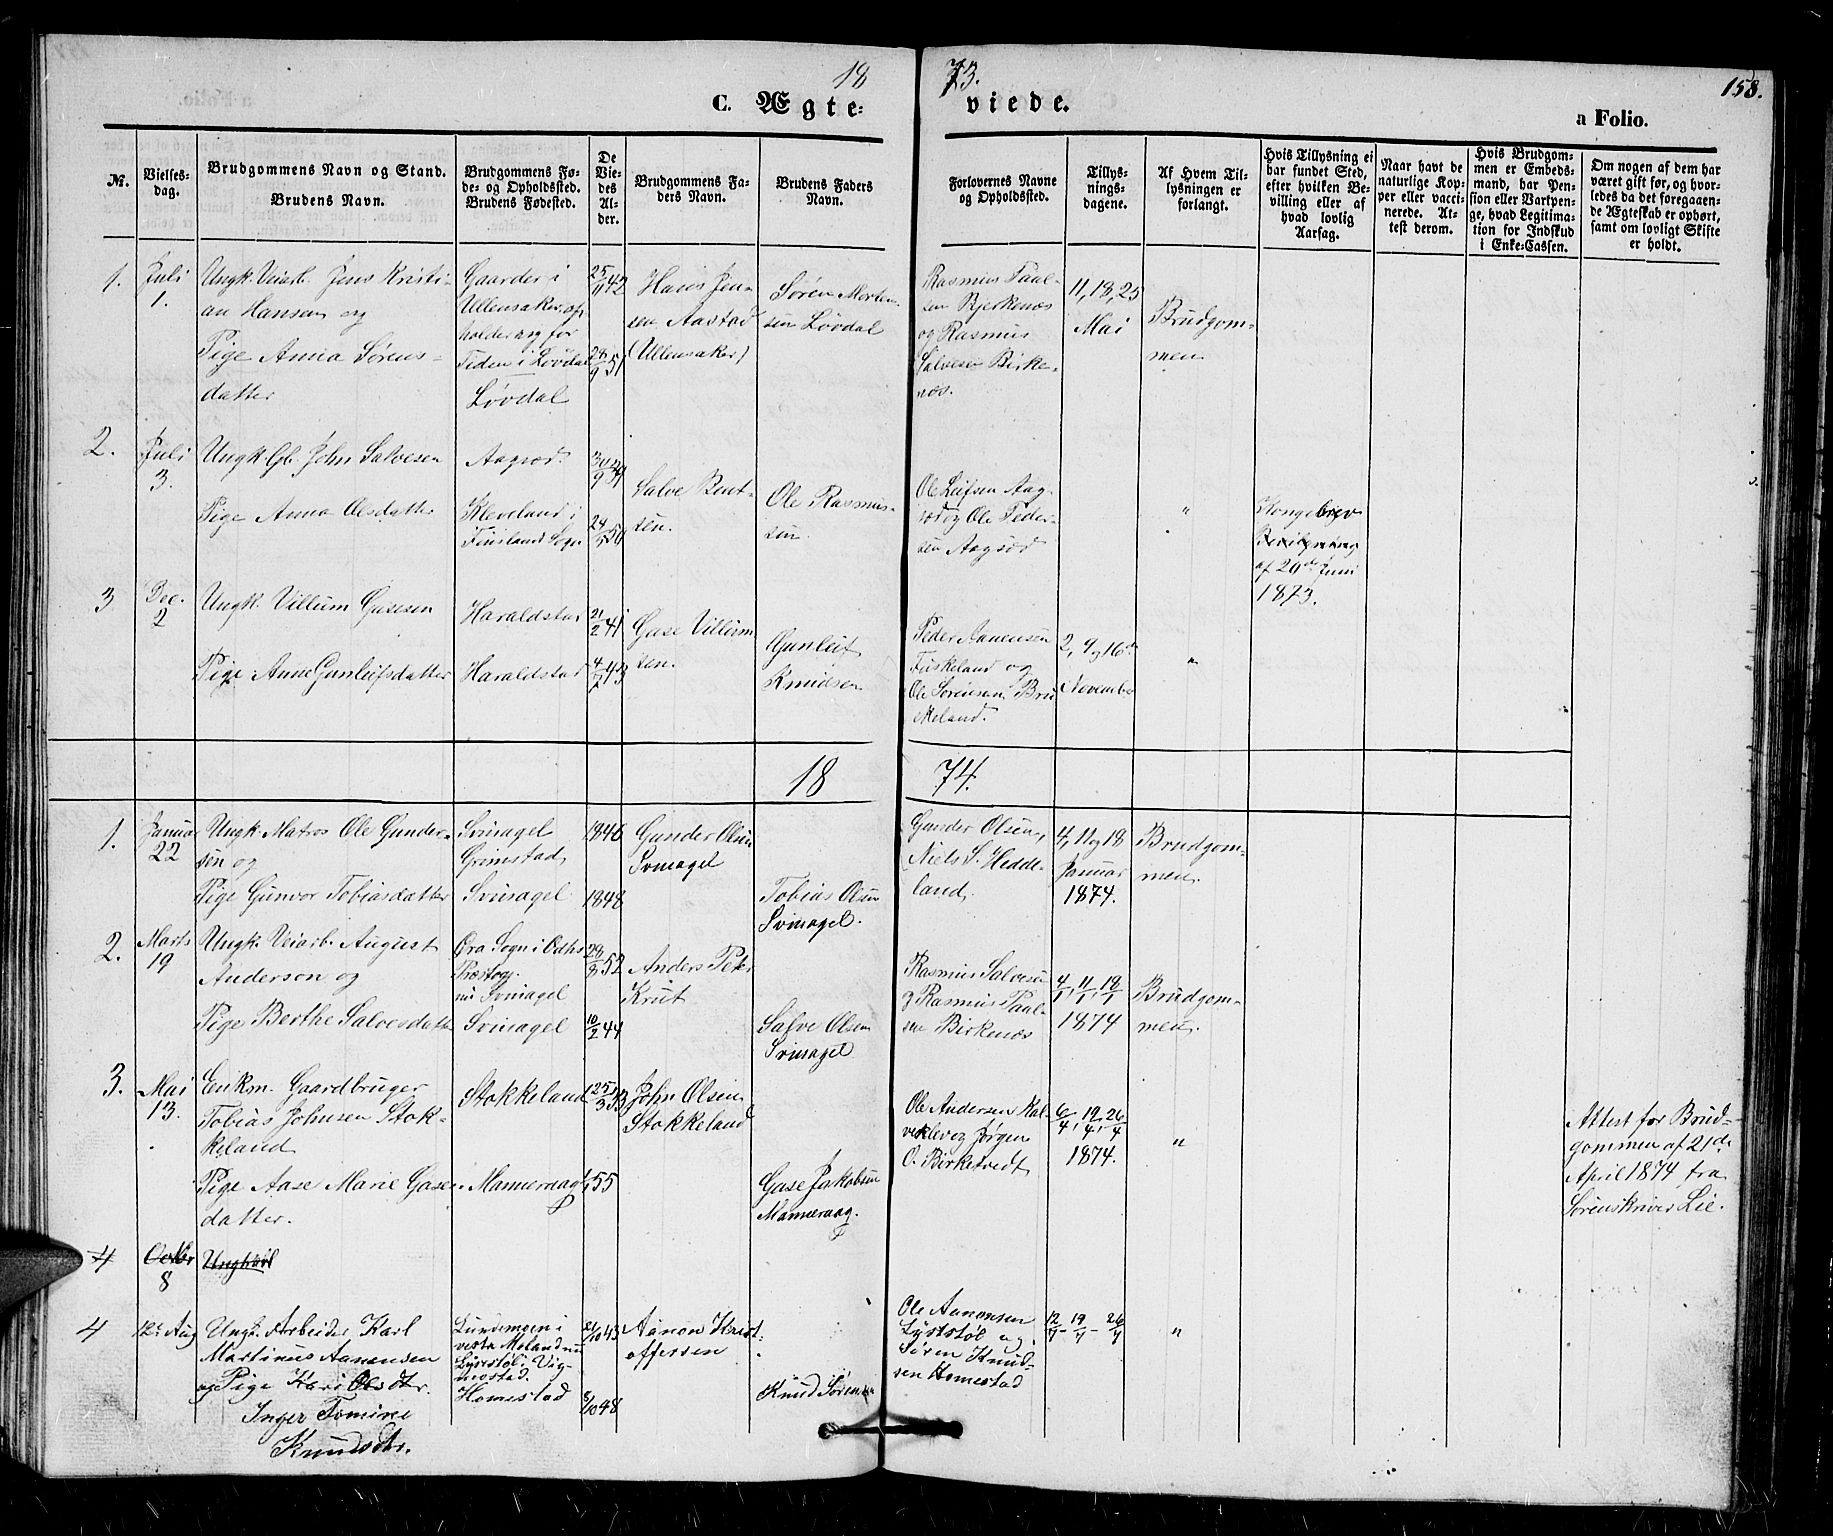 18 73.
158.
C. Ægte- viede.
a Folio.
№.
Vielses-
dag.
Brudgommens Navn og Stand.
Brudens Navn.
Brudgommens Fø-
de- og Opholdssted.
Brudens Fødested.
De
Vie-
des
Al-
der.
Brudgommens Fa-
ders Navn.
Brudens Faders
Navn.
Forlovernes Navne
og Opholdssted.
Tillys-
nings-
dagene.
Af Hvem Til-
lysningen er
forlangt.
Hvis Tillysning ei
har fundet Sted,
efter hvilken Be-
villing eller af
hvad lovlig
Aarsag.
Naar havt de
naturlige Kop-
per eller vacci-
nerede. At-
test derom.
Hvis Brudgom-
men er Embeds-
mand, har Pen-
sion eller Vartpen-
ge, hvad Legitima-
tion for Indskud
i Enke-Cassen.
Om nogen af dem har
været gift før, og hvor-
ledes da det foregaaen-
de Ægteskab er ophørt,
samt om lovligt Skifte
er holdt.
1.
Juli
1.
Ungk. Veiarb. Jens Kristi-
an Hansen og
Pige Anna Sørens-
datter
Gaarder i
Ullensaker, op-
holder sig for
Tiden i Løvdal
Løvdal
25/11 42
28/9 51
Hans Jen-
sen Aastad
(Ullensaker)
Søren Morten-
sen Løvdal
Rasmus Paal-
sen Bjerkenæs
og Rasmus
Salvesen Birke-
næs.
11, 18, 25
Mai
Brudgom-
men.
2.
Juli
3.
Ungk. Gb. John Salvesen
Pige Anna Olsdatter
Aagsød.
Kleveland i
Finsland Sogn
30/9 39
Salve Bent-
sen.
Ole Rasmus-
sen.
Ole Leifsen Aag-
sød og Ole Peder-
sen Aagsød
"
Kongebrev
af 20de Juni
1873.
3
Dec.
2
Ungk. Villum Gasesen
Pige Anne Gunleifsdatter
Haraldstad
Haraldstad
21/2 41
4/7 43
Gase Villum-
sen.
Gunleif
Knudsen
Peder Aanensen
Fuskeland og
Ole Sørensen Bru-
skeland.
2, 9 og 16de
November
"
18 74.
1.
Januar
22
Ungk. Matros Ole Gunder-
sen og
Pige Gunvor Tobiasdatter
Svinagel
Grimstad
Svinagel
1846
1848
Gunder Olsen
Svinagel
Tobias Olsen
Svinagel.
Gunder Olsen,
Niels S. Hedde-
land
4, 11 og 18
Januar
1874.
Brudgom-
men.
2.
Marts
19
Ungk. Veiarb. August
Anderson og
Pige Berthe Salvesdatter
Øra Sogn i Odhs
Præstegj.
nu Svinagel
Svinagel
28/8 52
10/2 44
Anders Peter
Krut
Salve Olsen
Svinagel
Rasmus Salvesen
og Rasmus Paal-
sen Birkenæs
4/1, 11/1, 18/1
1874
Brudgom-
men.
3.
Mai
13.
Enkm. Gaardbruger
Tobias Johnsen Stok-
keland
Pige Aase Marie Gase-
datter.
Stokkeland
Manneraag
55
John Olsen
Stokkeland
Gase Jakobsen
Manneraag.
Ole Andersen Kal-
veklev og Jørgen
O. Birketvedt
6/4, 19/4, 26/4
1874.
"
Attest for Brud-
gommen af 21de
April 1874 fra
Sørenskriver Lie.
4
Octbr
8
Ungkarl
4
12te Aug
Ungk. Arbeider Karl
Martinus Aanensen
og Pige Kari Olsdtr.
Inger Tomine
Knudsdtr.
Lundemoen i
vestre Moland nu
Lystøl i Vig-
mostad.
Homestad
21/10 43
8/10 48
Aanon Krist-
offersen
Knud Sørensen
Ole Aanonsen
Lystøl og
Søren Knud-
sen Homestad
12/7 - 19/7 - 26/7
"